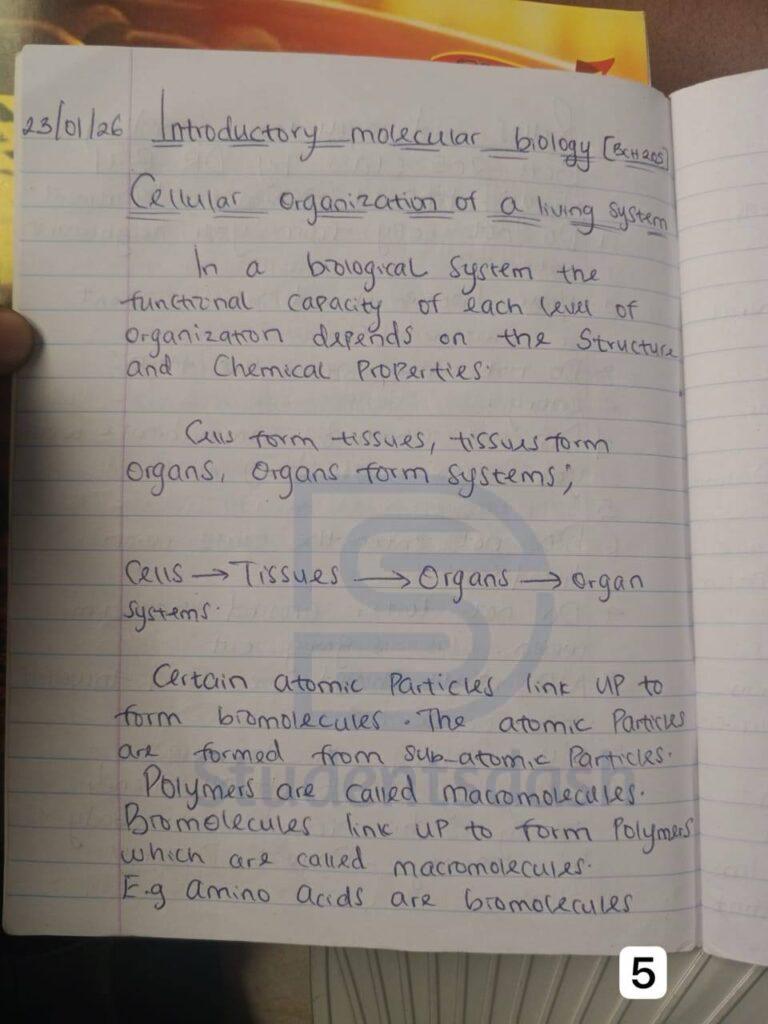 23/01/26 Introductory molecular biology [BCH205]
Cellular organization of a living system
In a biological system the
functional capacity of each level of
organization depends on the structure
and Chemical Properties.
Cells form tissues, tissues form
Organs, Organs form systems;
Cells → Tissues → Organs → Organ
systems.
Certain atomic Particles link up to
form biomolecules. The atomic Particles
are formed from sub-atomic Particles.
Polymers are called macromolecules.
Biomolecules link up to form Polymers
which are called macromolecules.
E.g amino acids are biomolecules
Studentsdash
5